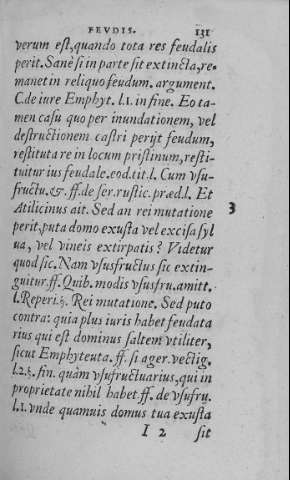 FEVDIS. 131
verum est, quando tota res feudalis
perit. Sanè si in parte sit extincta, re-
manet in reliquo feudum. argument.
C. de iure Emphyt. l.1. in fine. Eo ta-
men casu quo per inundationem, vel
destructionem castri perijt feudum,
restituta re in locum pristinum, resti-
tuitur ius feudale. eod. tit. l. Cum vsu-
fructu. &. ff. de ser. rustic. præd. l. Et
Atilicinus ait. Sed an rei mutatione 3
perit, puta domo exusta vel excisa syl
ua, vel vineis extirpatis? Videtur
quod sic. Nam vsusfructus sic extin-
guitur. ff. Quib. modis vsusfru. amitt.
l. Reperi. §. Rei mutatione. Sed puto
contra: quia plus iuris habet feudata
rius qui est dominus saltem vtiliter,
sicut Emphyteuta. ff. si ager. vectig.
l.2. §. fin. quàm vsufructuarius, qui in
proprietate nihil habet. ff. de vsufru.
l.1. vnde quamuis domus tua exusta
I 2 sit